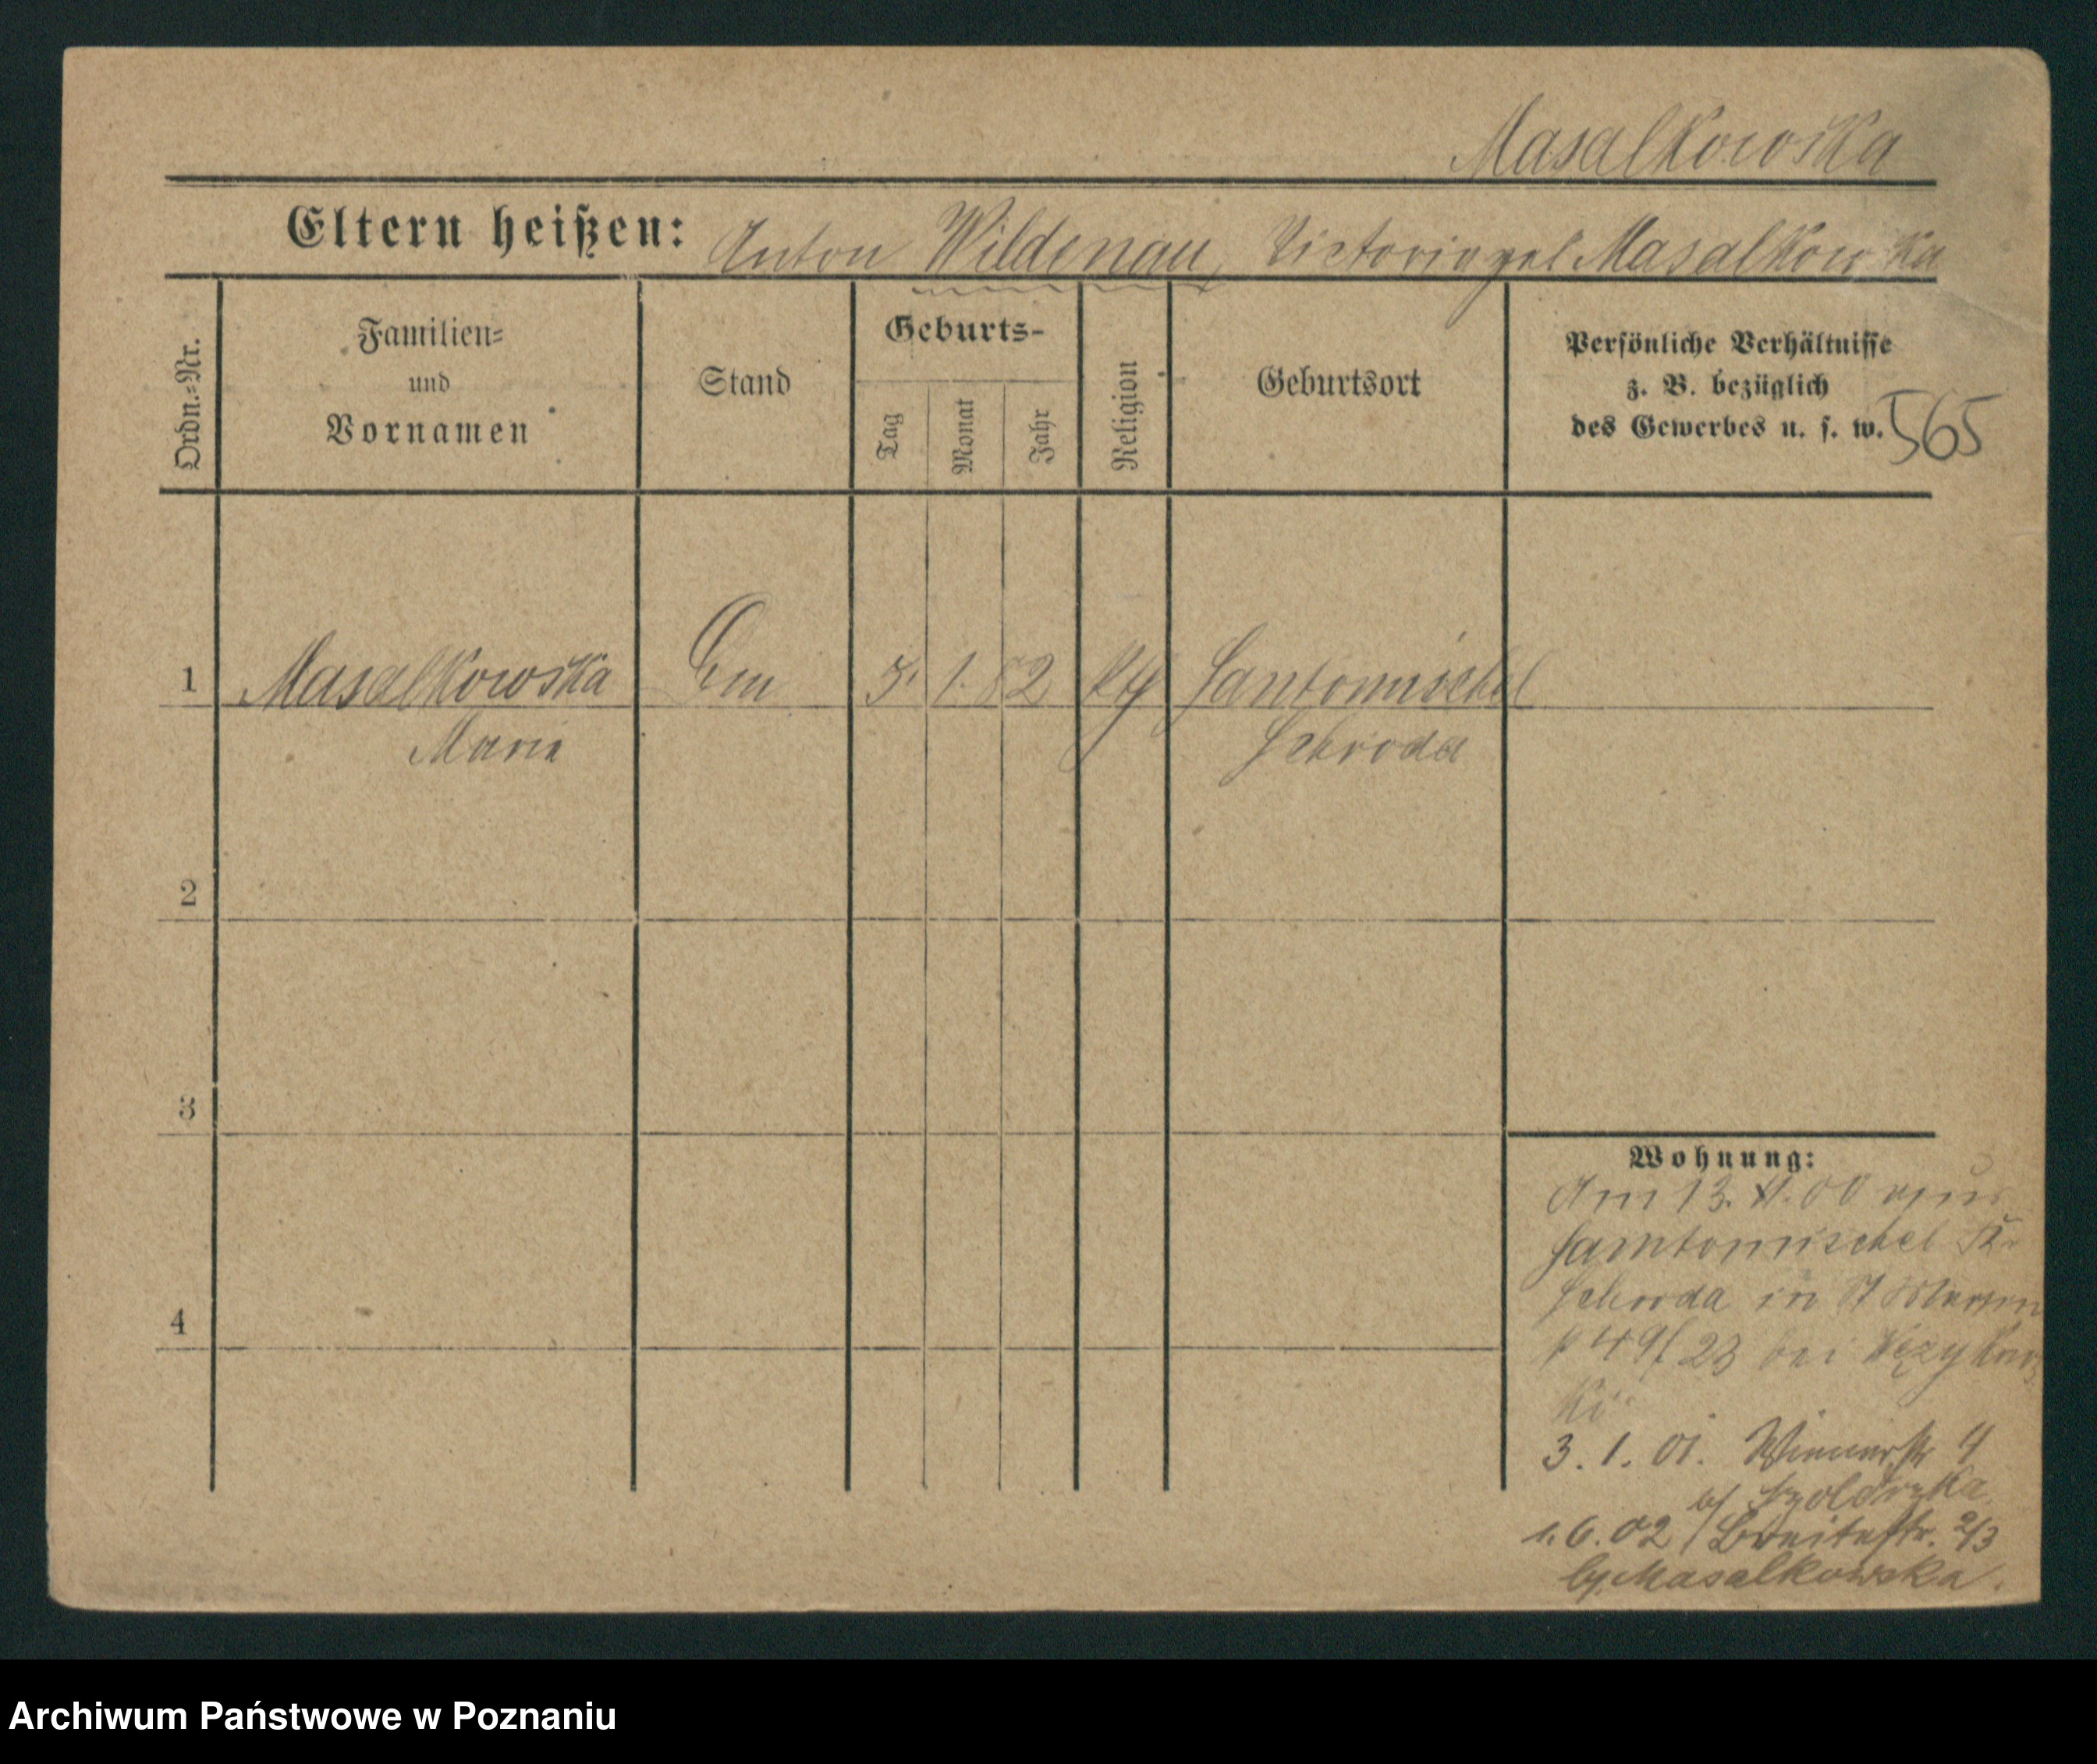 Masalkowska
Eltern heißen: Anton Wildenau, Victoria geb Masalkowska
Ordn.=Nr.
Familien=
und
Vornamen
Stand
Geburts-
Tag
Monat
Jahr
Religion
Geburtsort
Persönliche Verhältnisse
z. B. bezüglich
des Gewerbes u. s. w.
565
1 Masalkowska 1. 82 Santomischel
Marie Schroda
2
3
4
Wohnung:
Am 13. 00
Santomischel Kr
Schroda in St Martin
49/ 23 bei
ki
3. 1. 01. 4
bei
1. 6. 02 Breitestr. 2/3
by. Masalkowska.
Archiwum Państwowe w Poznaniu